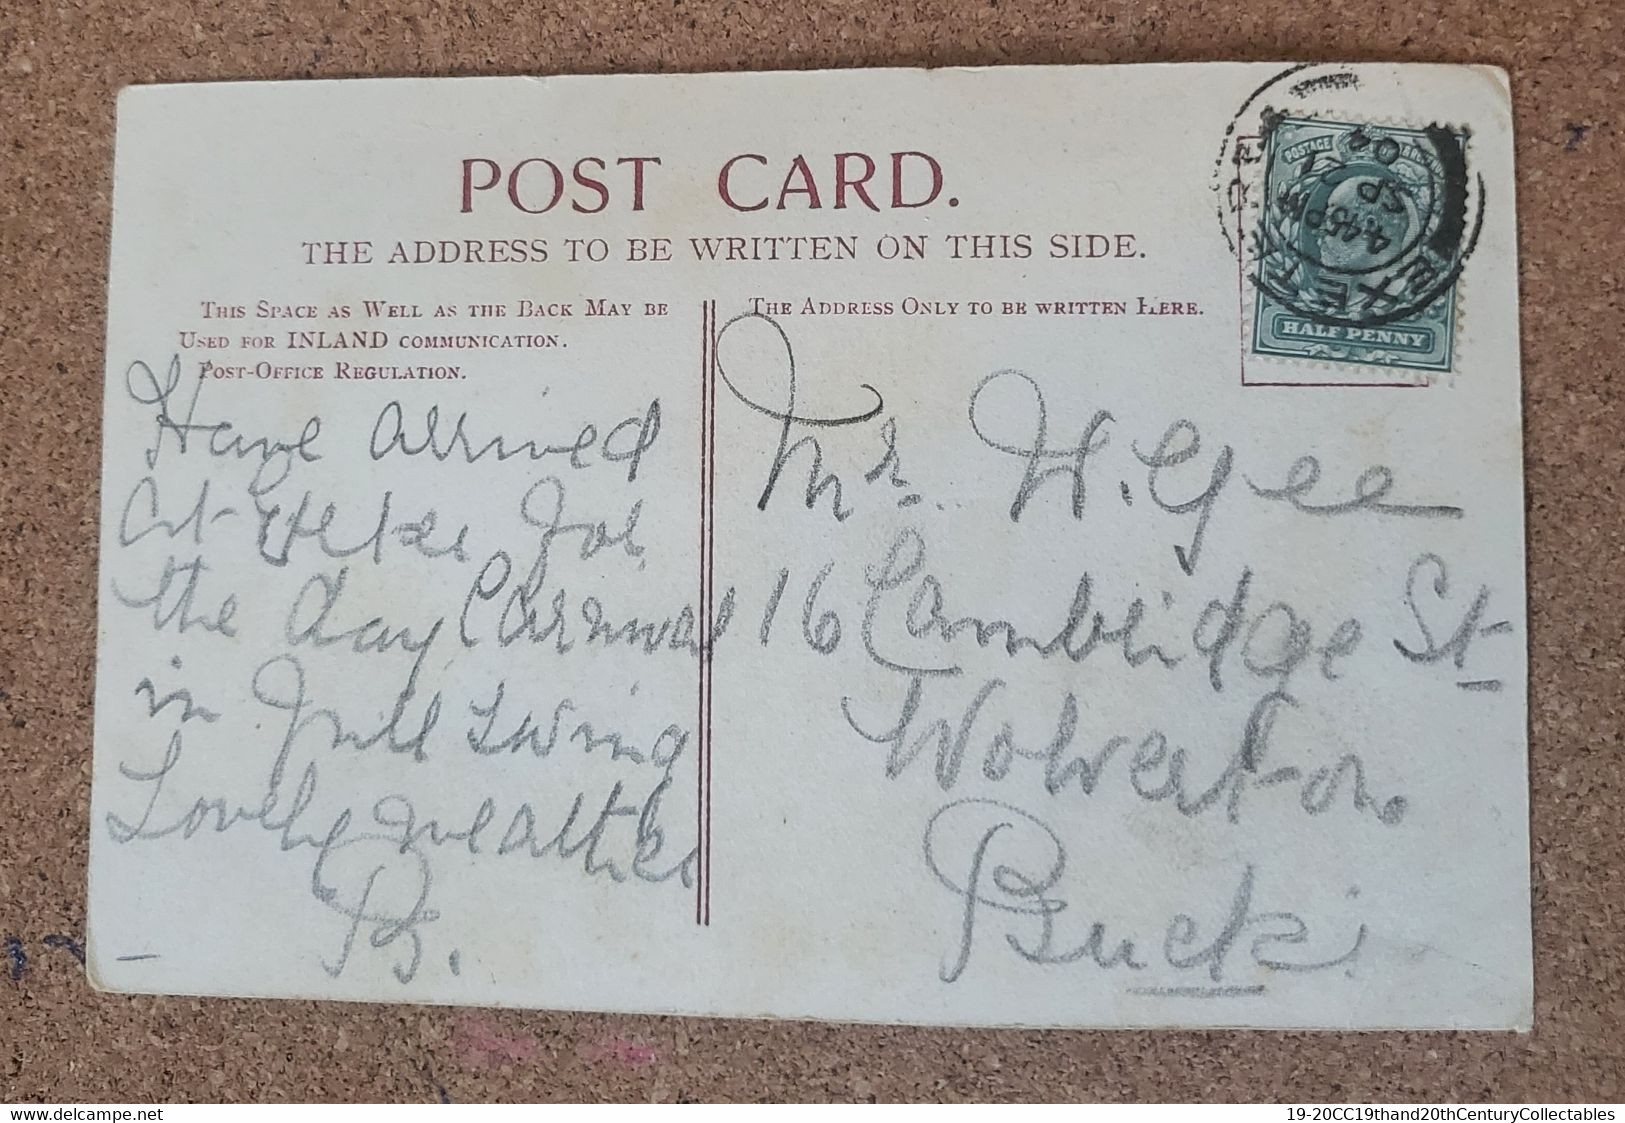 POST CARD.
THE ADDRESS TO BE WRITTEN ON THIS SIDE.
THIS SPACE AS WELL AS THE BACK MAY BE
USED FOR INLAND COMMUNICATION.
POST-OFFICE REGULATION.
THE ADDRESS ONLY TO BE WRITTEN HERE.
POSTAGE
HALF PENNY
EXETER
4.45PM
SP 21
04
Have arrived
at Exeter for
the day Carnival
in full swing
Lovely weather
B.
Mr. H. Gee
16 Cambridge St
Wolverton
Bucks
delcampe.net
19-20CC19thand20thCenturyCollectables